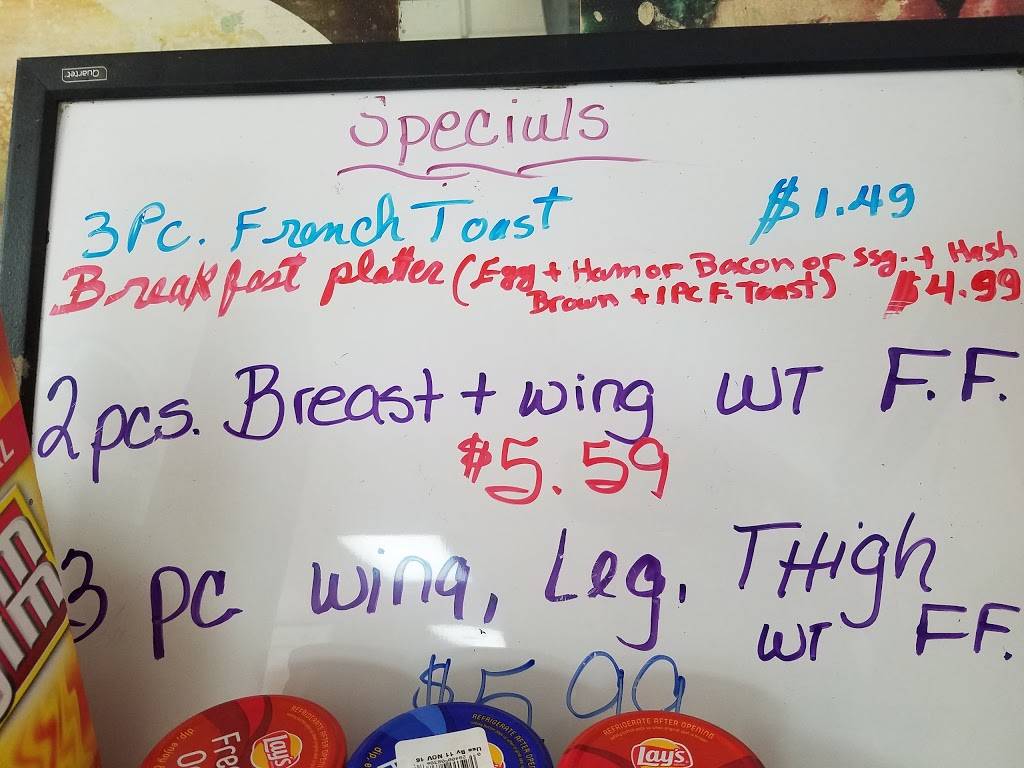 Quartet
Specials
3 Pc. French Toast $1.49
Breakfast platter (Egg + Ham or Bacon or ssg. + Hash
Brown + 1 Pc F. Toast) $4.99
2 pcs. Breast + wing WT F.F.
$5.59
3 pc wing, Leg, THigh
WT FF.
$5.99
REFRIGERATE AFTER OPENING
REFRIGERATE AFTER OPENING
REFRIGERATE AFTER OPENING
Lay's
Lay's
Fre
dip.
Use By 11 NOV 16